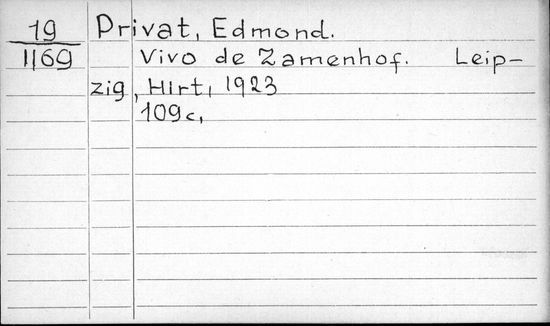 19 Privat, Edmond.
1169 Vivo de Zamenhof. Leip-
zig, Hirt, 1923
109c,